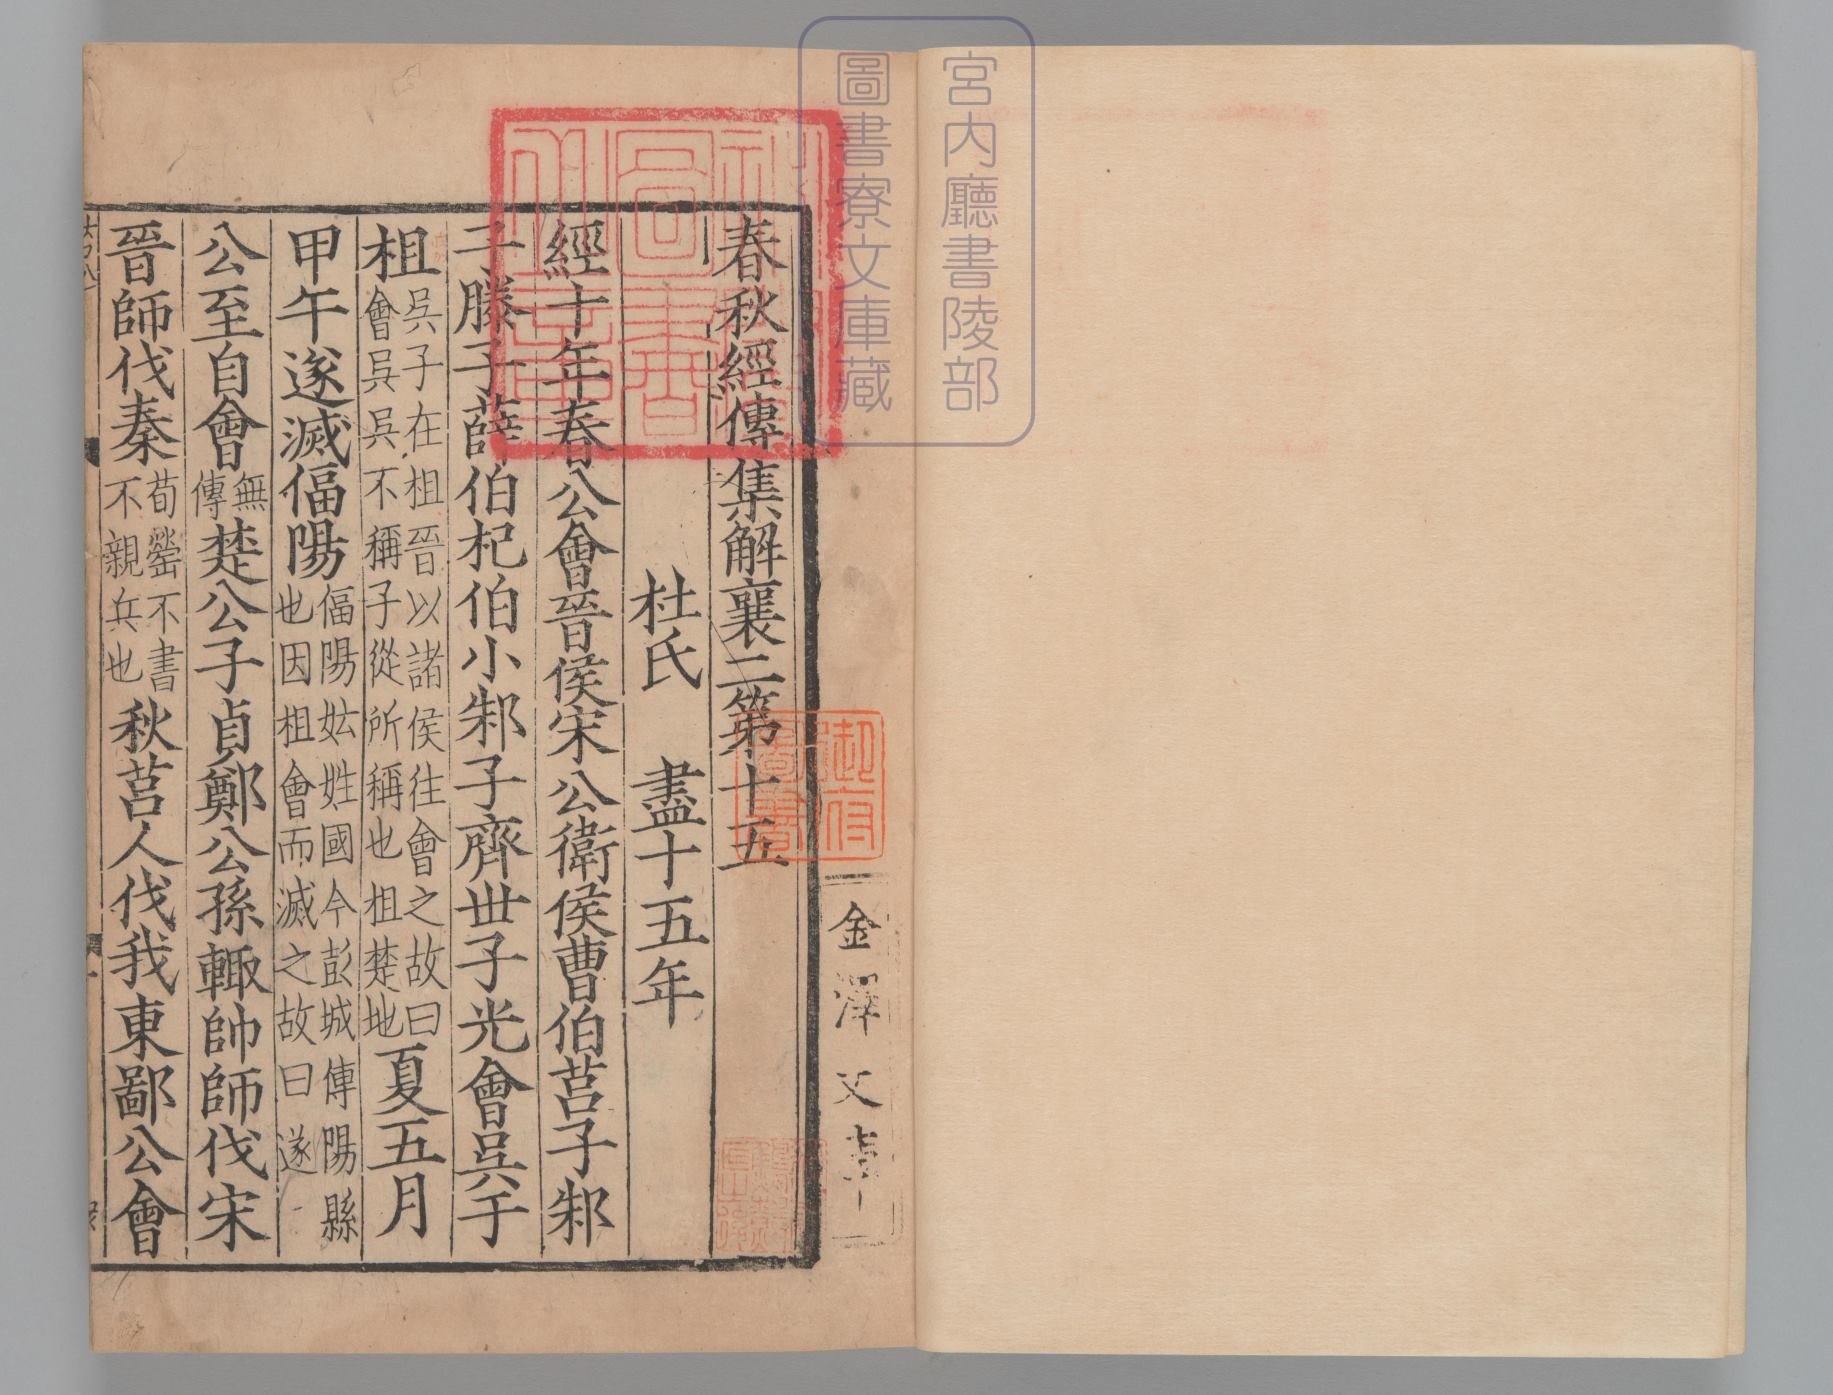 宮内廳書陵部
圖書寮文庫藏
春秋經傳集解襄二第十五
杜氏 盡十五年
經十年春公會晉侯宋公衛侯曹伯莒子邾
子滕子薛伯杞伯小邾子齊世子光會吳于
柤吳子在柤晉以諸侯往會之故曰會吳吳不稱子從所稱也柤楚地夏五月
甲午遂滅偪陽偪陽妘姓國今彭城傳陽縣也因柤會而滅之故曰遂
公至自會無傳楚公子貞鄭公孫輒帥師伐宋
晉師伐秦荀罃不書不親兵也秋莒人伐我東鄙公會
金澤文庫
御府圖書